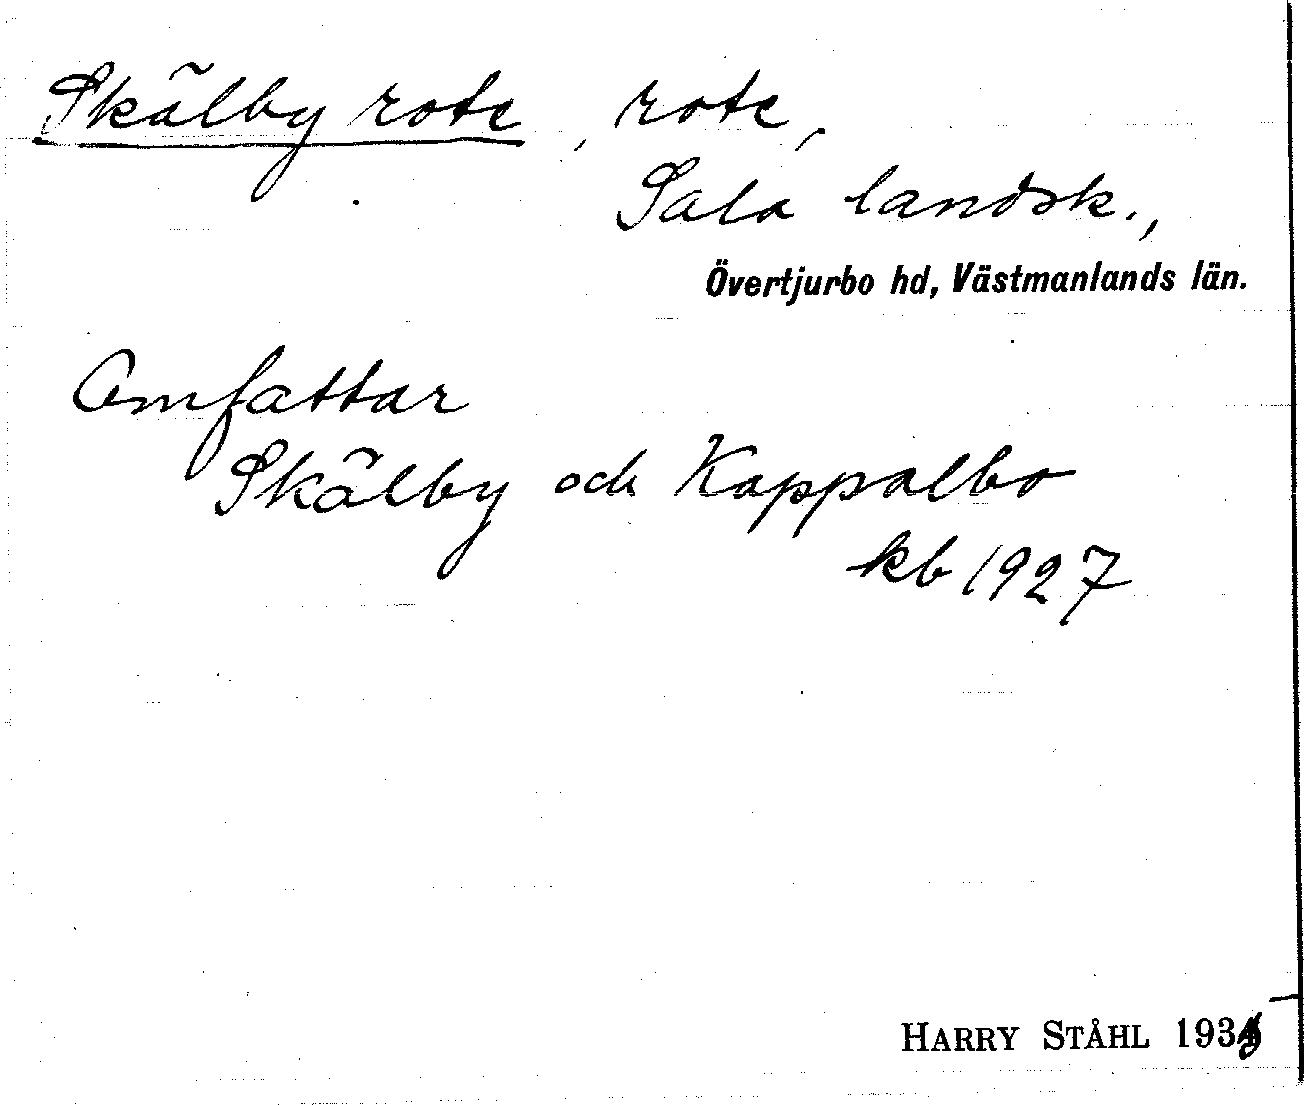 Skälby rote, rote,
Sala landsk.,
Övertjurbo hd, Västmanlands län.
Omfattar
Skälby och Kappalbo
kb 1927
HARRY STÅHL